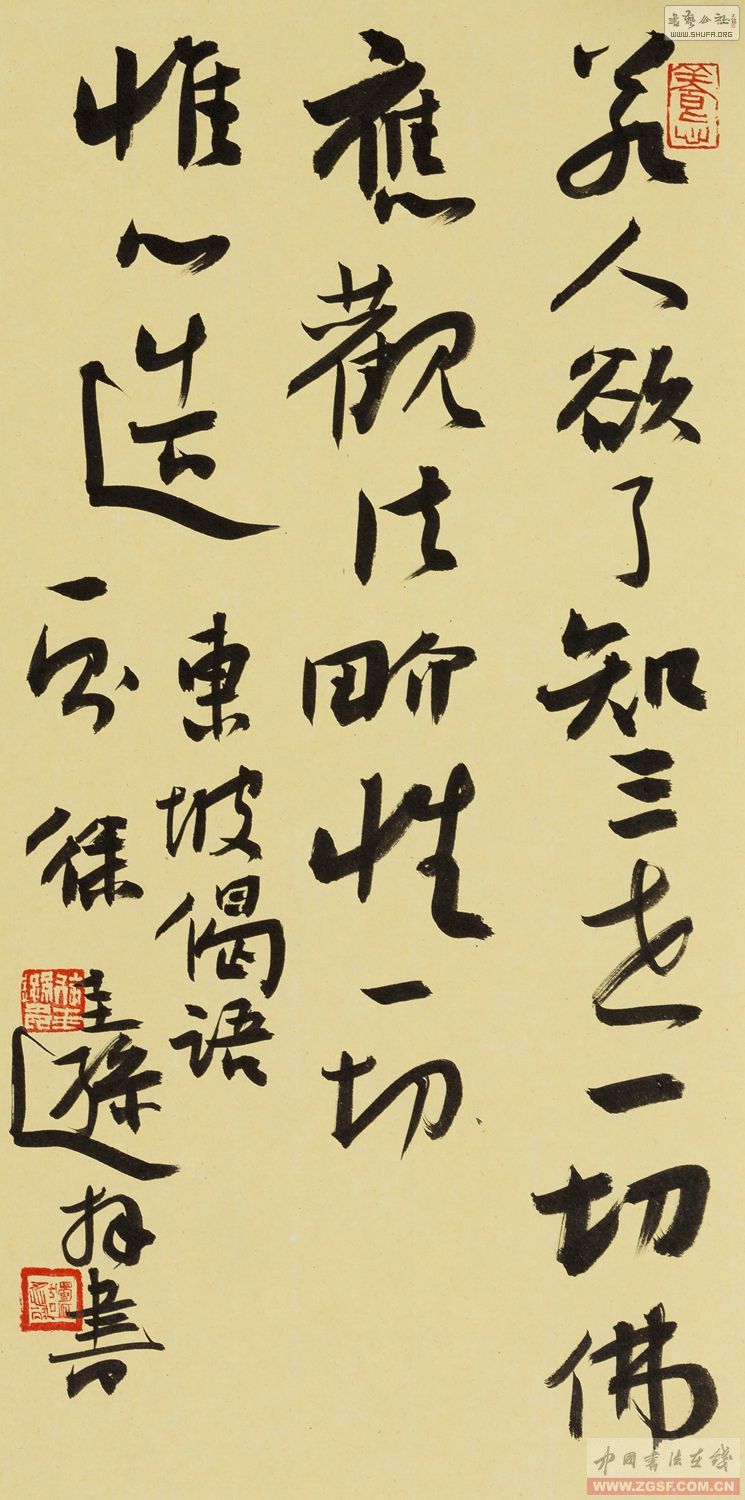 若人欲了知三世一切佛
應觀法畍性一切
惟心造
東坡偈語
徐圭遜拜書
书艺公社
WWW.SHUFA.ORG
中国书法在线
WWW.ZGSF.COM.CN